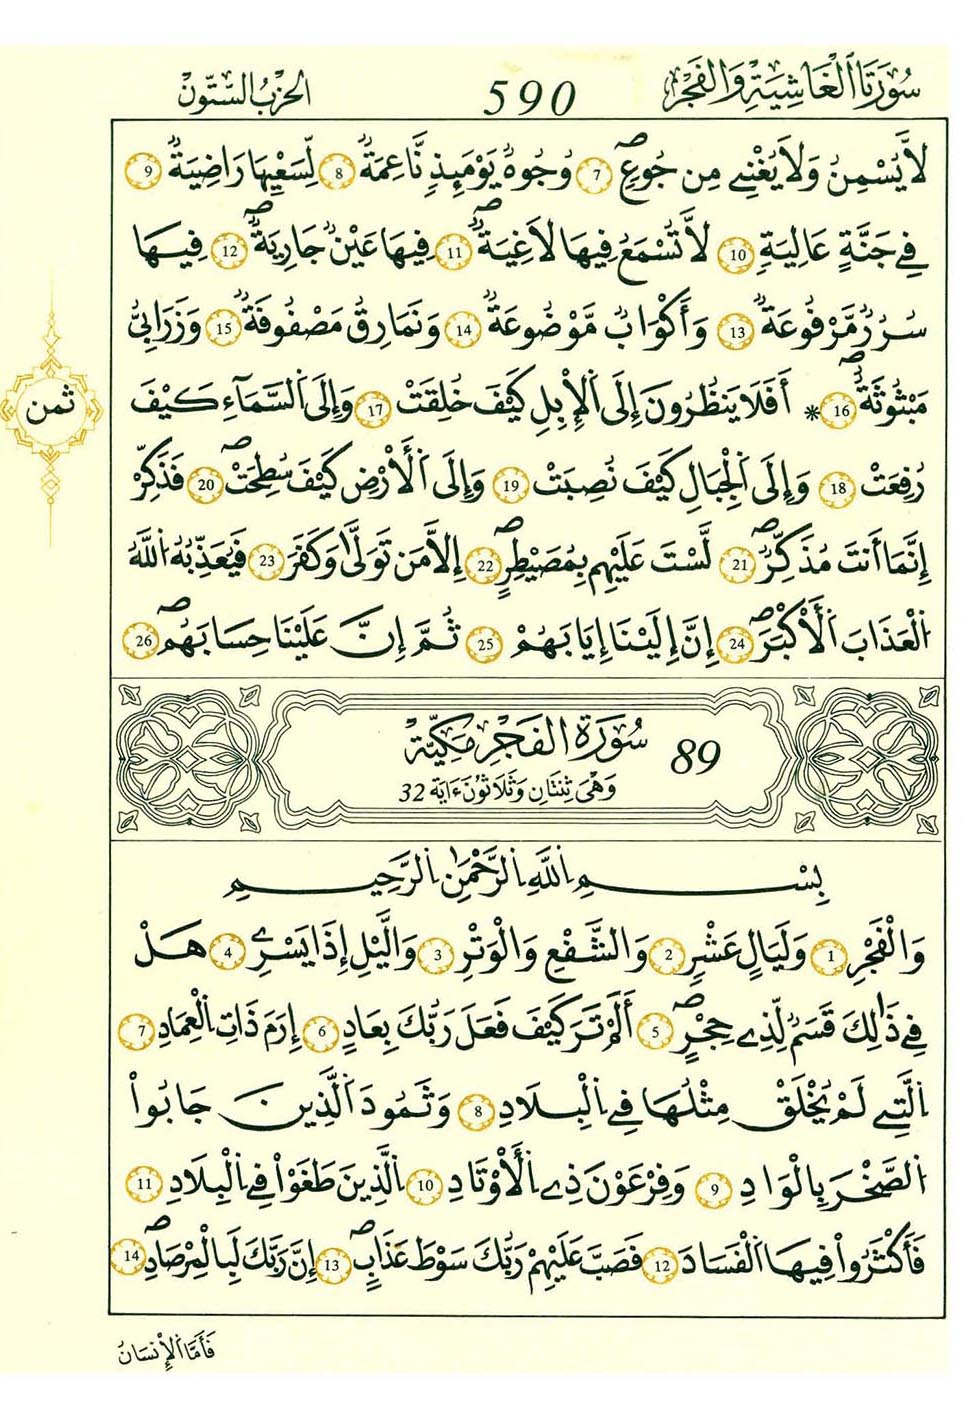 سُورَتَا الْغَاشِيَةِ وَالْفَجْرِ 590 الحِزْبُ السِّتُّونْ
لَّا يُسْمِنُ وَلَا يُغْنِے مِن جُوعٍۖ 7 وُجُوهٞ يَوْمَئِذٖ نَّاعِمَةٞ 8 لِّسَعْيِهَا رَاضِيَةٞ 9
فِے جَنَّةٍ عَالِيَةٖ 10 لَّا تُسْمَعُ فِيهَا لَٰغِيَةٞۖ 11 فِيهَا عَيْنٞ جَارِيَةٞۖ 12 فِيهَا
سُرُرٞ مَّرْفُوعَةٞ 13 وَأَكْوَابٞ مَّوْضُوعَةٞ 14 وَنَمَارِقُ مَصْفُوفَةٞ 15 وَزَرَابِيُّ
مَبْثُوثَةٌۖ 16 * أَفَلَا يَنظُرُونَ إِلَى اَلْإِبِلِ كَيْفَ خُلِقَتْ 17 وَإِلَى اَلسَّمَآءِ كَيْفَ
رُفِعَتْ 18 وَإِلَى اَلْجِبَالِ كَيْفَ نُصِبَتْ 19 وَإِلَى اَلْأَرْضِ كَيْفَ سُطِحَتْۖ 20 فَذَكِّرْ
إِنَّمَا أَنتَ مُذَكِّرٞۖ 21 لَّسْتَ عَلَيْهِم بِمُصَيْطِرٍۖ 22 إِلَّا مَن تَوَلَّىٰ وَكَفَرَ 23 فَيُعَذِّبُهُ اُللَّهُ
اُلْعَذَابَ اَلْأَكْبَرَۖ 24 إِنَّ إِلَيْنَا إِيَابَهُمْ 25 ثُمَّ إِنَّ عَلَيْنَا حِسَابَهُمۖ 26
89 سُورَةُ الْفَجْرِ مَكِّيَّةْ
وَهْيَ ثِنْتَانِ وَثَلَاثُونَ ءَايَةً 32
بِسْمِ اِللَّهِ اِلرَّحْمَٰنِ اِلرَّحِيمِ
وَالْفَجْرِ 1 وَلَيَالٍ عَشْرٖ 2 وَالشَّفْعِ وَالْوَتْرِ 3 وَاليْلِ إِذَا يَسْرِۦ 4 هَلْ
فِے ذَٰلِكَ قَسَمٞ لِّذِے حِجْرٍۖ 5 أَلَمْ تَرَ كَيْفَ فَعَلَ رَبُّكَ بِعَادٍ 6 إِرَمَ ذَاتِ اِلْعِمَادِ 7
اِلَّتِے لَمْ يُخْلَقْ مِثْلُهَا فِے اِلْبِلَادِ 8 وَثَمُودَ اَلَّذِينَ جَابُواْ
اُلصَّخْرَ بِالْوَادِ 9 وَفِرْعَوْنَ ذِے اِلْأَوْتَادِ 10 اِلَّذِينَ طَغَوْاْ فِے اِلْبِلَادِ 11
فَأَكْثَرُواْ فِيهَا اَلْفَسَادَ 12 فَصَبَّ عَلَيْهِمْ رَبُّكَ سَوْطَ عَذَابٍۖ 13 إِنَّ رَبَّكَ لَبِالْمِرْصَادِۖ 14
ثمن
فَأَمَّا اَلْإِنسَانُ